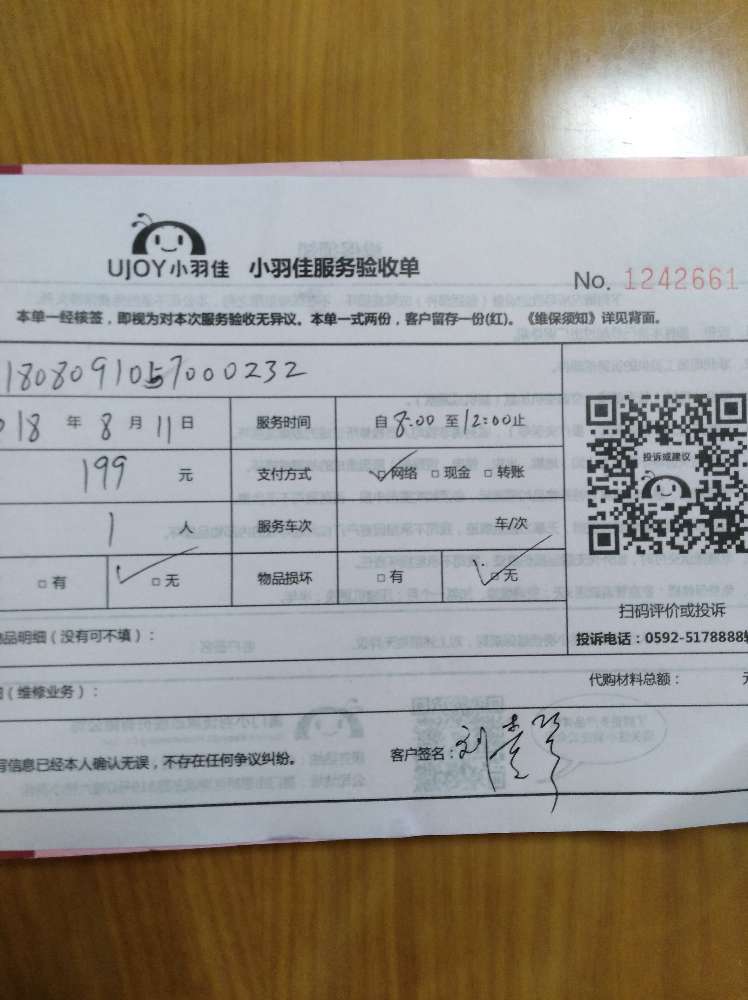 UJOY小羽佳 小羽佳服务验收单
No. 1242661
本单一经核签，即视为对本次服务验收无异议。本单一式两份，客户留存一份(红)。《维保须知》详见背面。
1808091057000232
18 年 8 月 11 日 服务时间 自 8:00 至 12:00止
199 元 支付方式 网络 现金 转账
1 人 服务车次 车/次
投诉或建议
有 无 物品损坏 有 无
扫码评价或投诉
品明细（没有可不填）：
投诉电话：0592-5178888
（维修业务）：
代购材料总额：
信息已经本人确认无误，不存在任何争议纠纷。 客户签名：刘